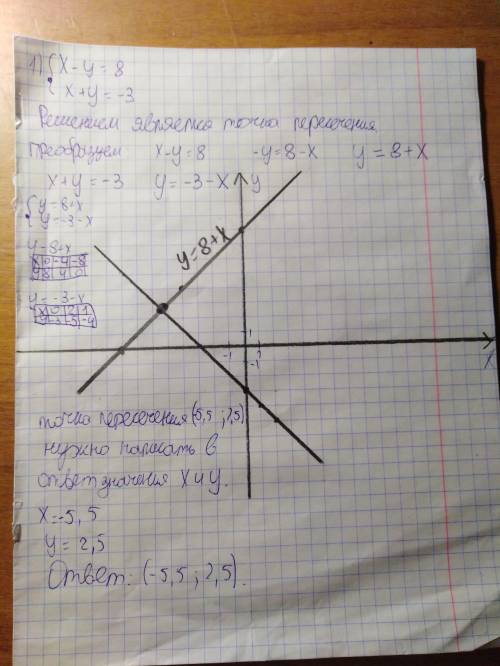 1) { x - y = 8
x + y = -3
Решением является точка пересечения
преобразуем x-y=8 -y=8-x y=8+x
x+y=-3 y=-3-x y
{ y=8+x
y=-3-x
y=8+x
x 0 -4 -8
y 8 4 0
y=8+x
y=-3-x
x 0 2 1
y -3 -5 -4
1
-1 1
x
точка пересечения (-5,5 ; 2,5)
нужно написать в
ответ значения x и y.
x=-5,5
y=2,5
Ответ: (-5,5 ; 2,5).